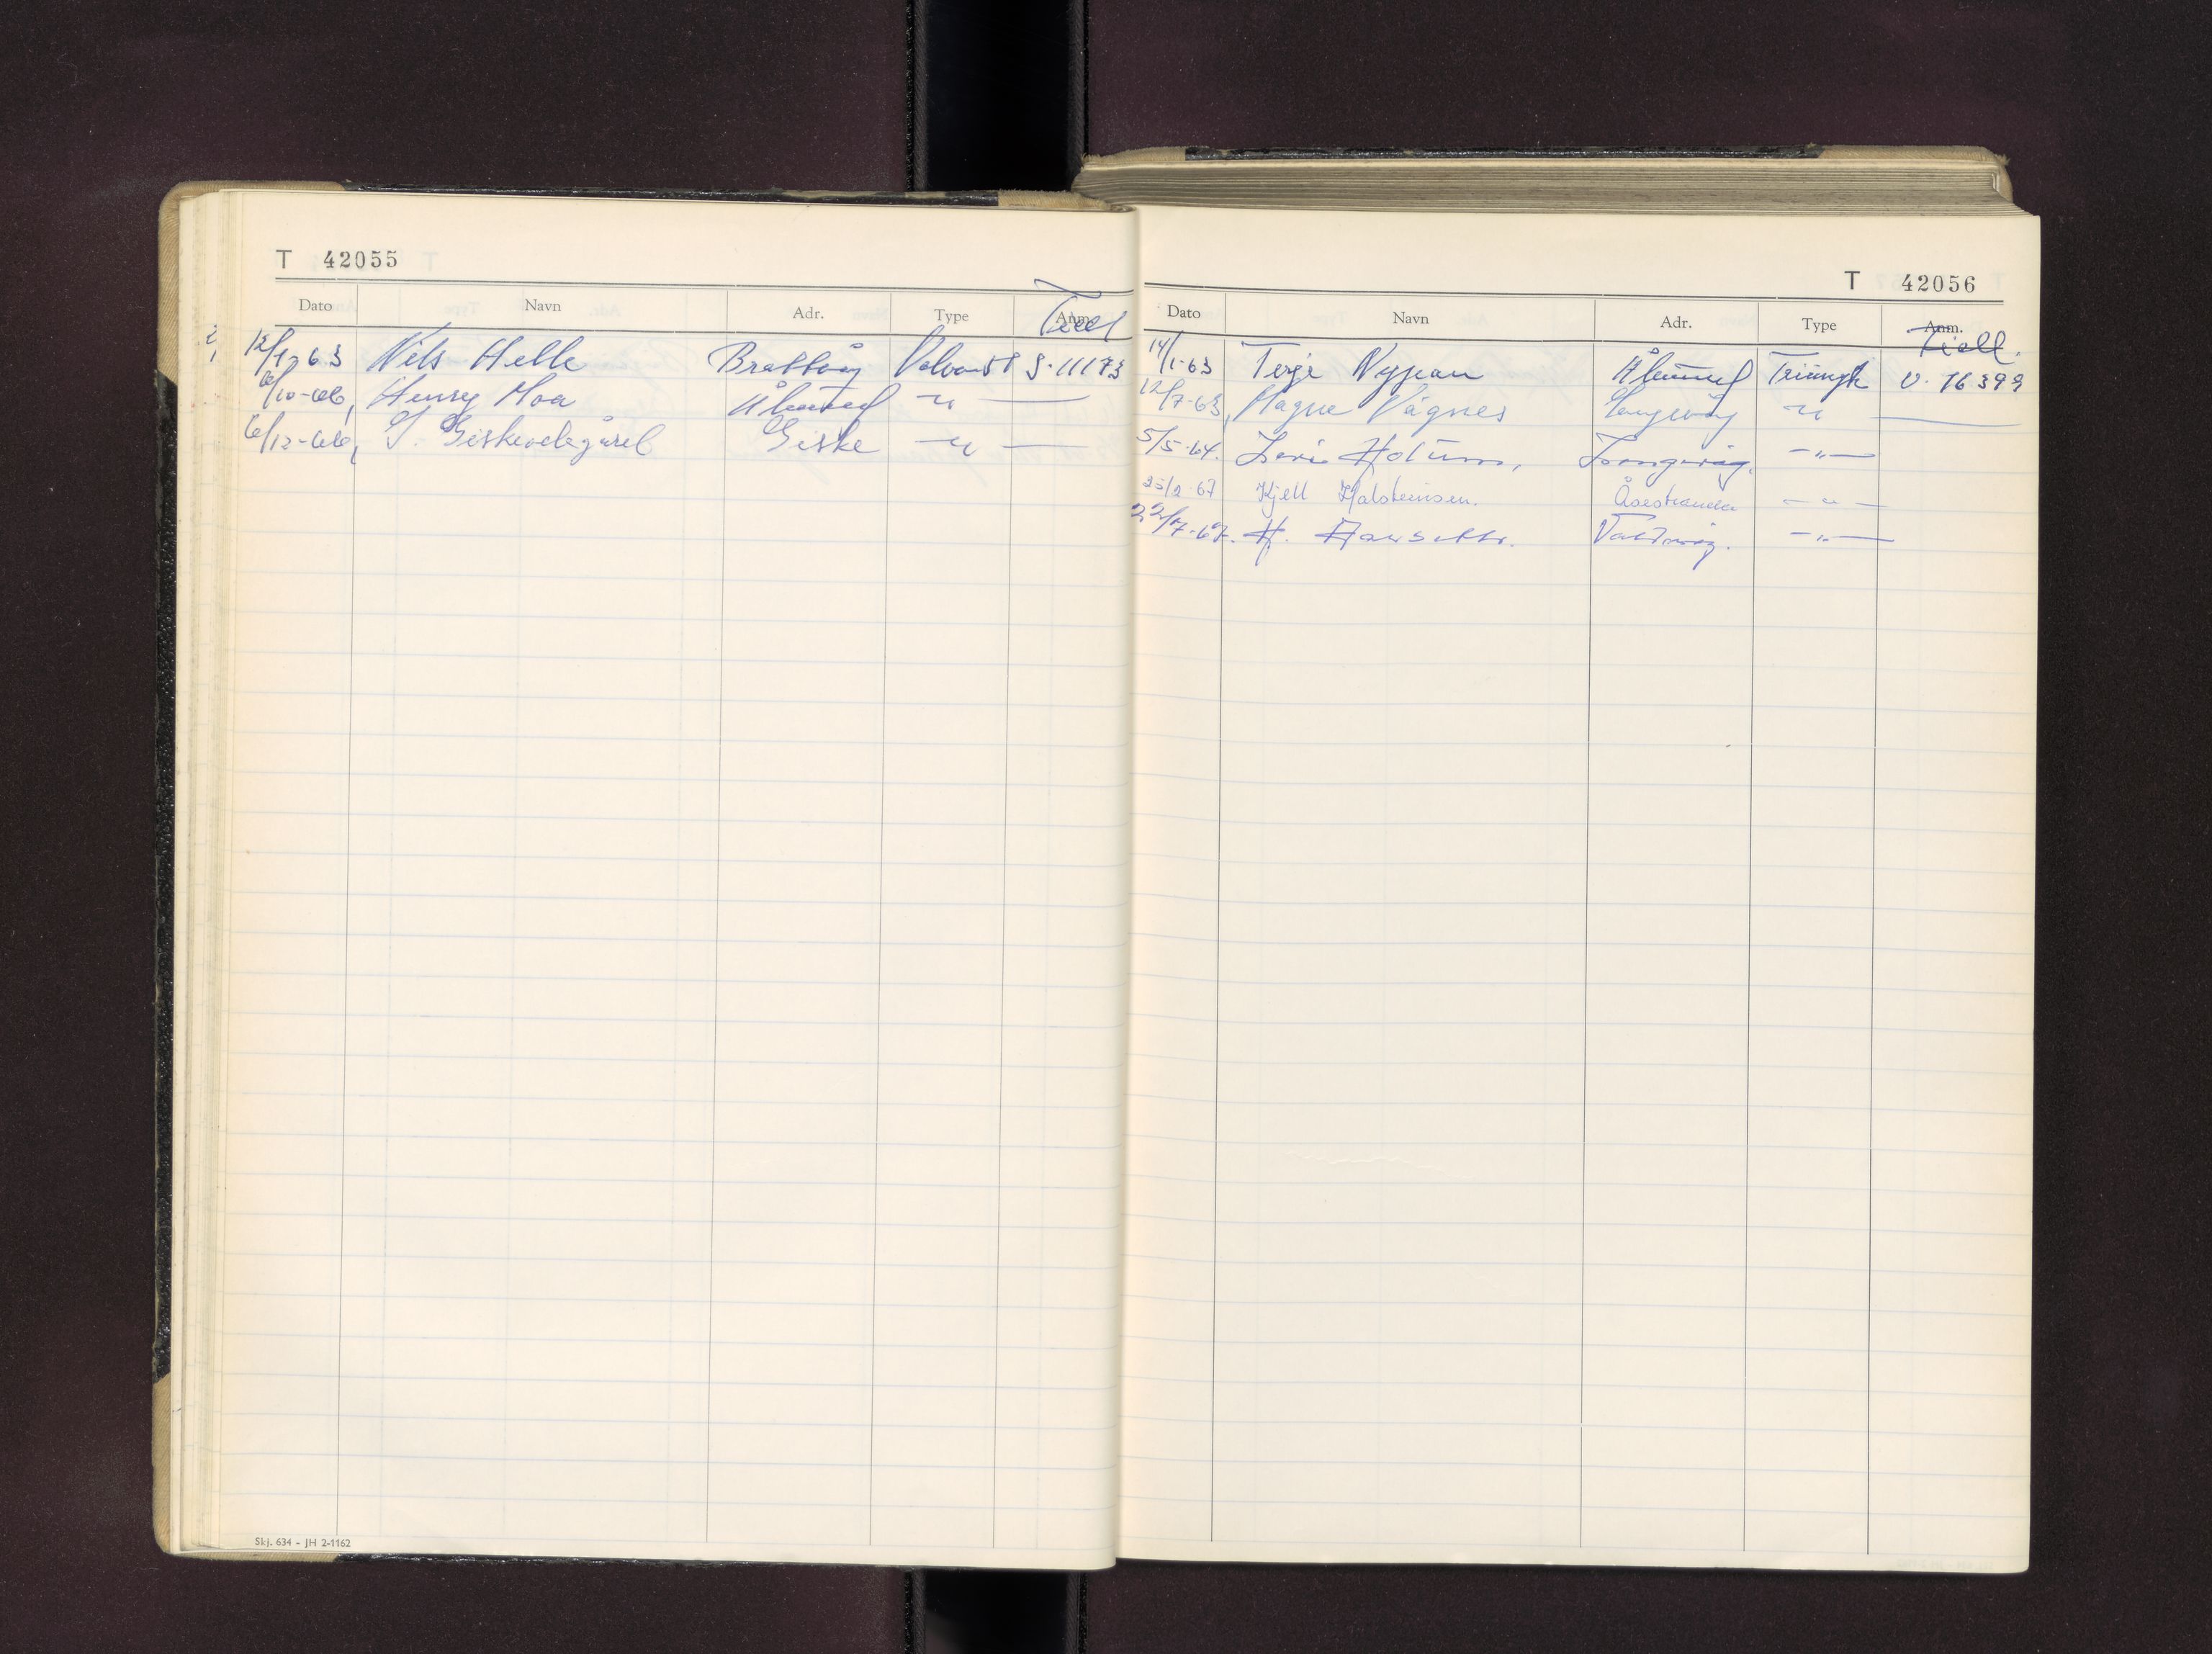 T 42055
Dato Navn Adr. Type Anm.
12/12 63 Nils Helle Brattvåg Volvo 58 S-11173
6/10-66, Henry Moa Ålesund — " —
6/12-66, Giske — " —
Skj. 634 - JH 2-1162
T 42056
Dato Navn Adr. Type Anm.
14/1-63 Terje Nypan Ålesund Triumph U-76399
12/7-63, Magne Vågnes Langevåg — " —
5/5-64. Holum, Langevåg. — " —
25/2-67 Kjell Halsteinsen. Åsestranda — " —
22/7-67. H. Valderøy. — " —